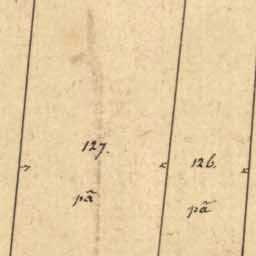 127.
pã
126.
pã